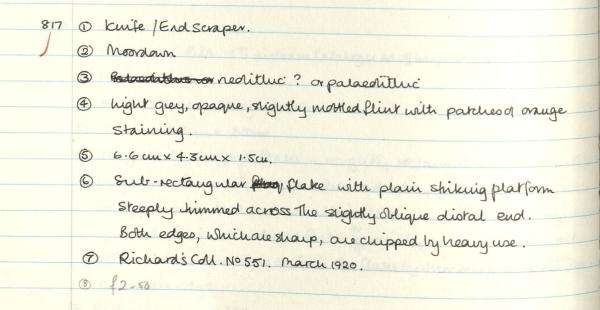 817 ① Knife / End Scraper.
② Moordown
③ neolithic ? or palaeolithic
④ Light grey, opaque, slightly mottled flint with patches of orange
staining.
⑤ 6.6cm x 4.3cm x 1.5cm.
⑥ Sub-rectangular flake with plain striking platform
steeply trimmed across the slightly oblique distal end.
Both edges, which are sharp, are chipped by heavy use.
⑦ Richard's Coll. No 551. March 1920.
⑧ £2-50